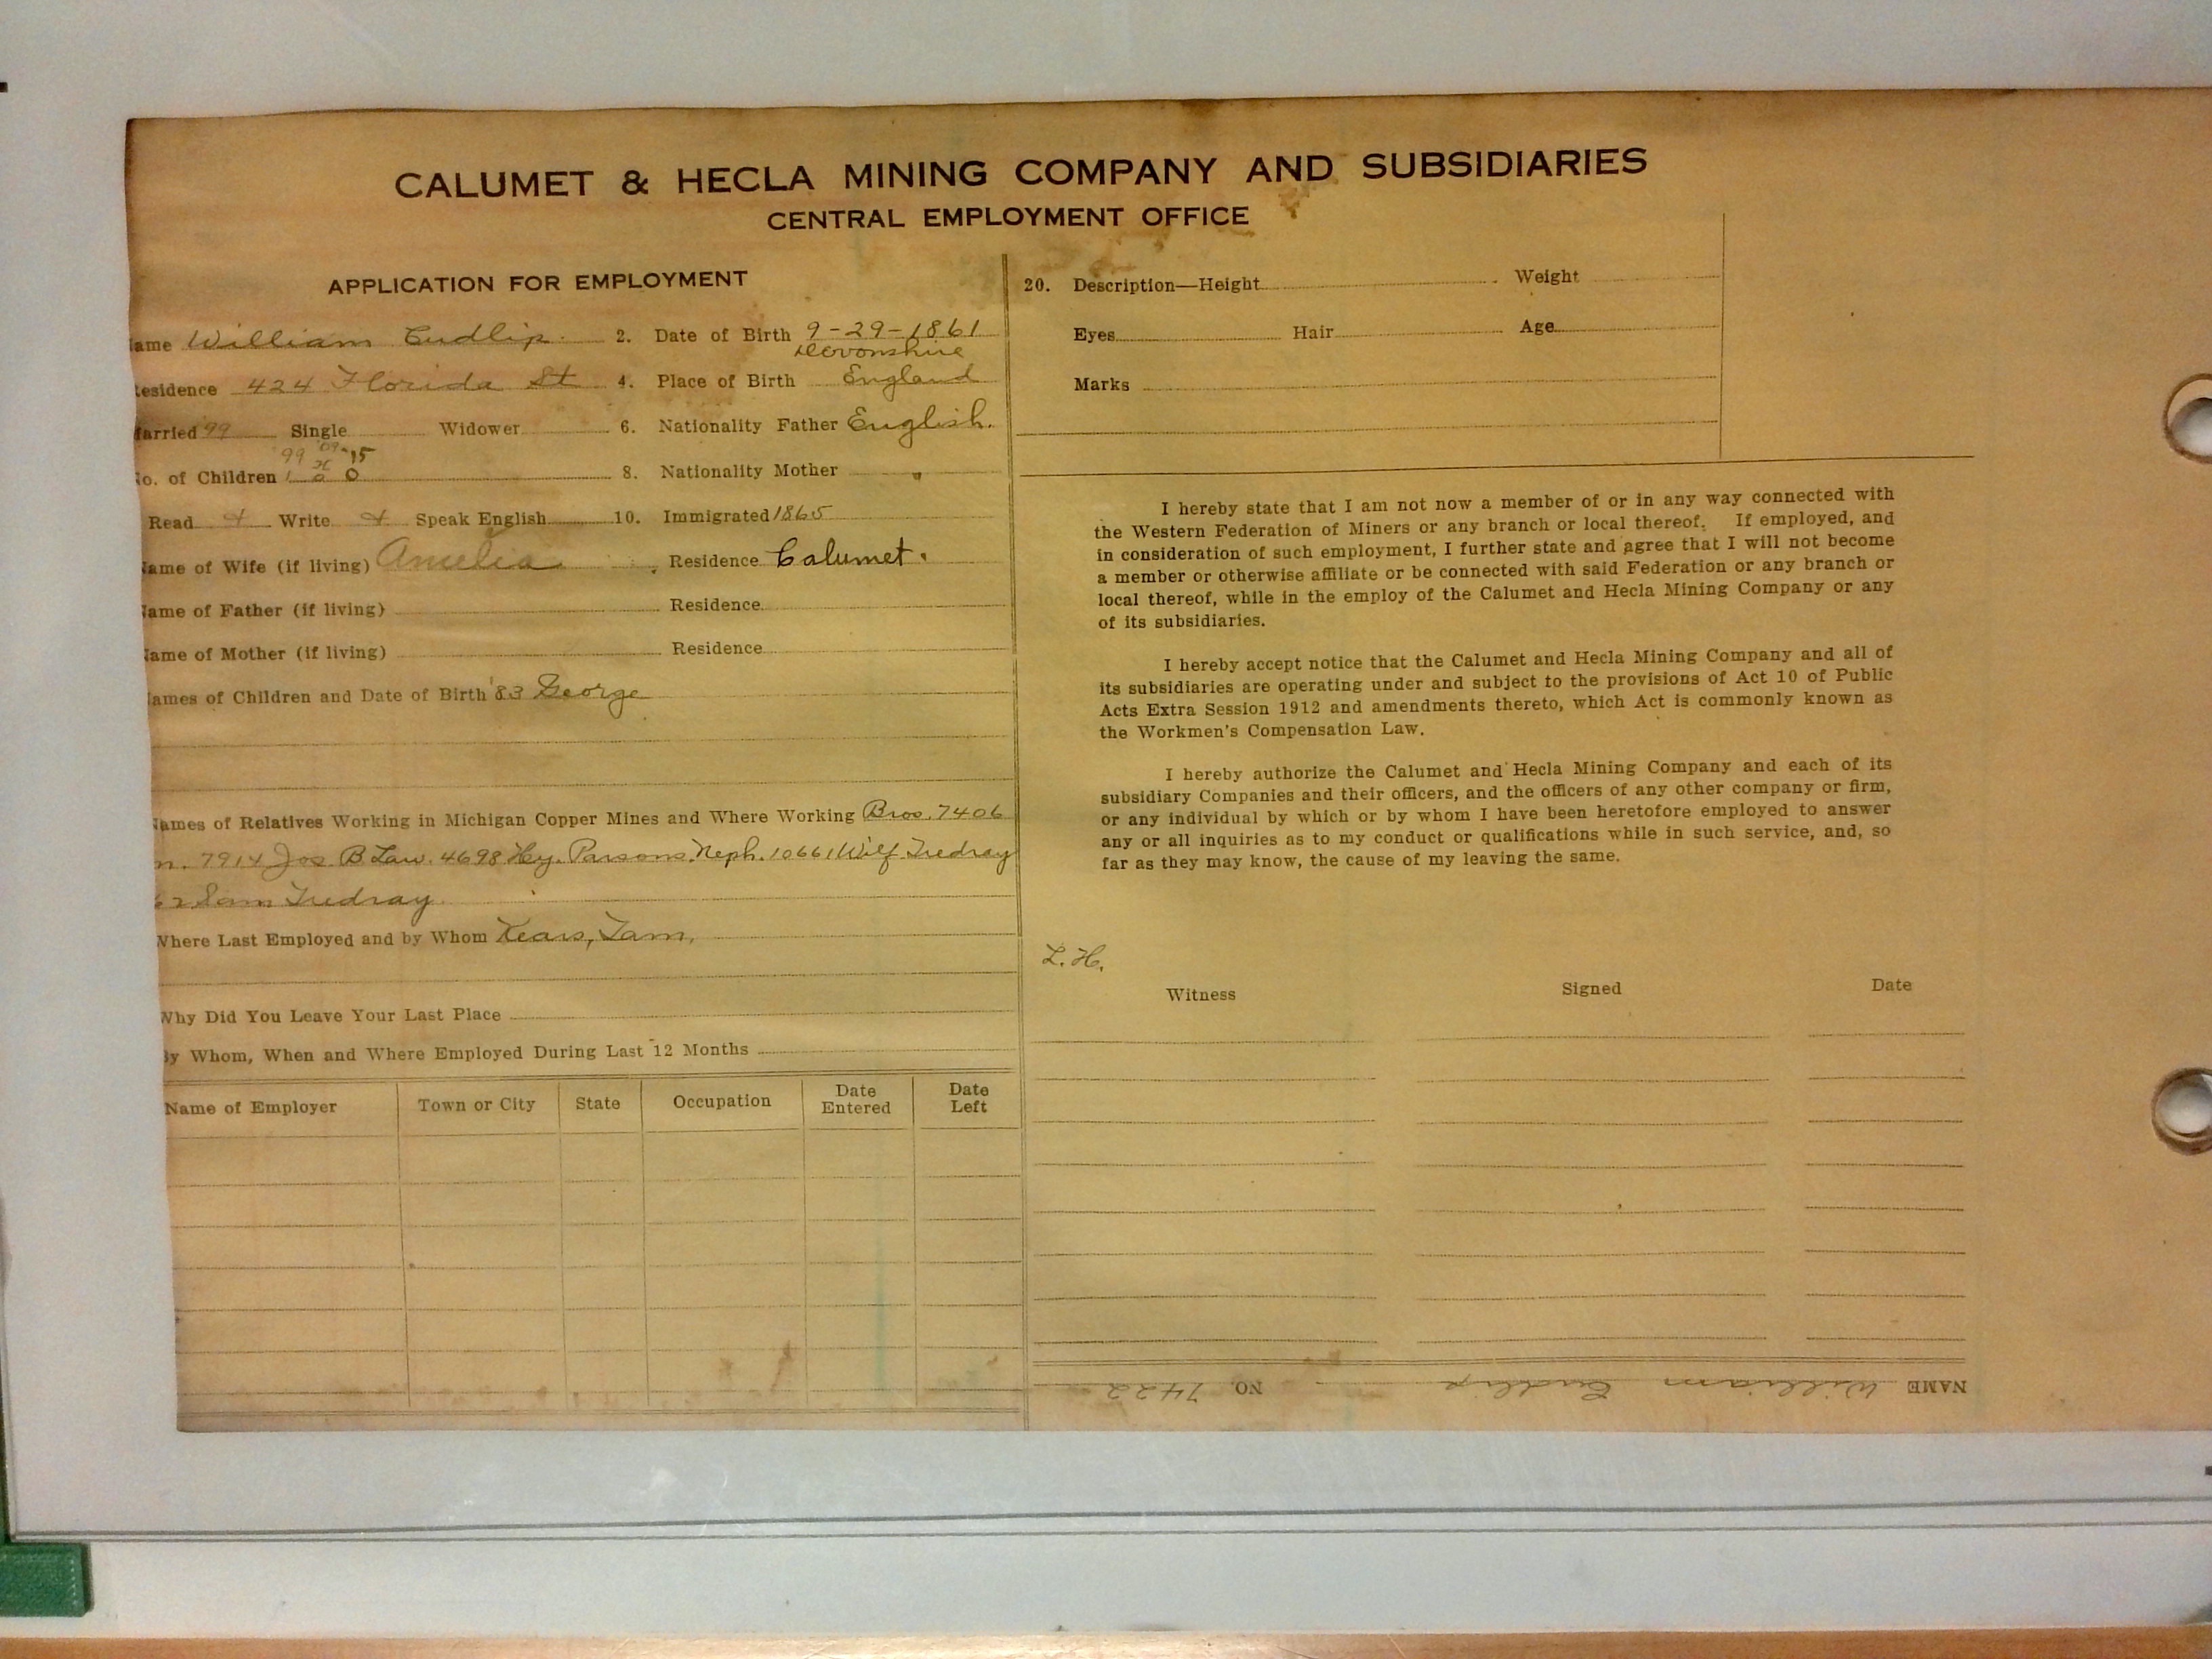 CALUMET & HECLA MINING COMPANY AND SUBSIDIARIES
CENTRAL EMPLOYMENT OFFICE
APPLICATION FOR EMPLOYMENT
ame William Cudlip. 2. Date of Birth 9-29-1861
Devonshire
esidence 424 Florida St 4. Place of Birth England
arried 99 Single Widower 6. Nationality Father English.
99 09 - 15
o. of Children 1 0 8. Nationality Mother "
Read Write Speak English 10. Immigrated 1865
ame of Wife (if living) Amelia Residence Calumet.
ame of Father (if living) Residence
ame of Mother (if living) Residence
ames of Children and Date of Birth '83 George
ames of Relatives Working in Michigan Copper Mines and Where Working Bros. 7406
n. 7914 Jos B. Law. 4698 Hy. Parsons. Neph. 10661 Wilf Tredray
62 Sam Tredray
Where Last Employed and by Whom Tam,
Why Did You Leave Your Last Place
y Whom, When and Where Employed During Last 12 Months
Name of Employer Town or City State Occupation Date Entered Date Left
20. Description—Height Weight
Eyes Hair Age
Marks
I hereby state that I am not now a member of or in any way connected with
the Western Federation of Miners or any branch or local thereof. If employed, and
in consideration of such employment, I further state and agree that I will not become
a member or otherwise affiliate or be connected with said Federation or any branch or
local thereof, while in the employ of the Calumet and Hecla Mining Company or any
of its subsidiaries.
I hereby accept notice that the Calumet and Hecla Mining Company and all of
its subsidiaries are operating under and subject to the provisions of Act 10 of Public
Acts Extra Session 1912 and amendments thereto, which Act is commonly known as
the Workmen's Compensation Law.
I hereby authorize the Calumet and Hecla Mining Company and each of its
subsidiary Companies and their officers, and the officers of any other company or firm,
or any individual by which or by whom I have been heretofore employed to answer
any or all inquiries as to my conduct or qualifications while in such service, and, so
far as they may know, the cause of my leaving the same.
L. H.
Witness Signed Date
NAME William Cudlip NO. 7422